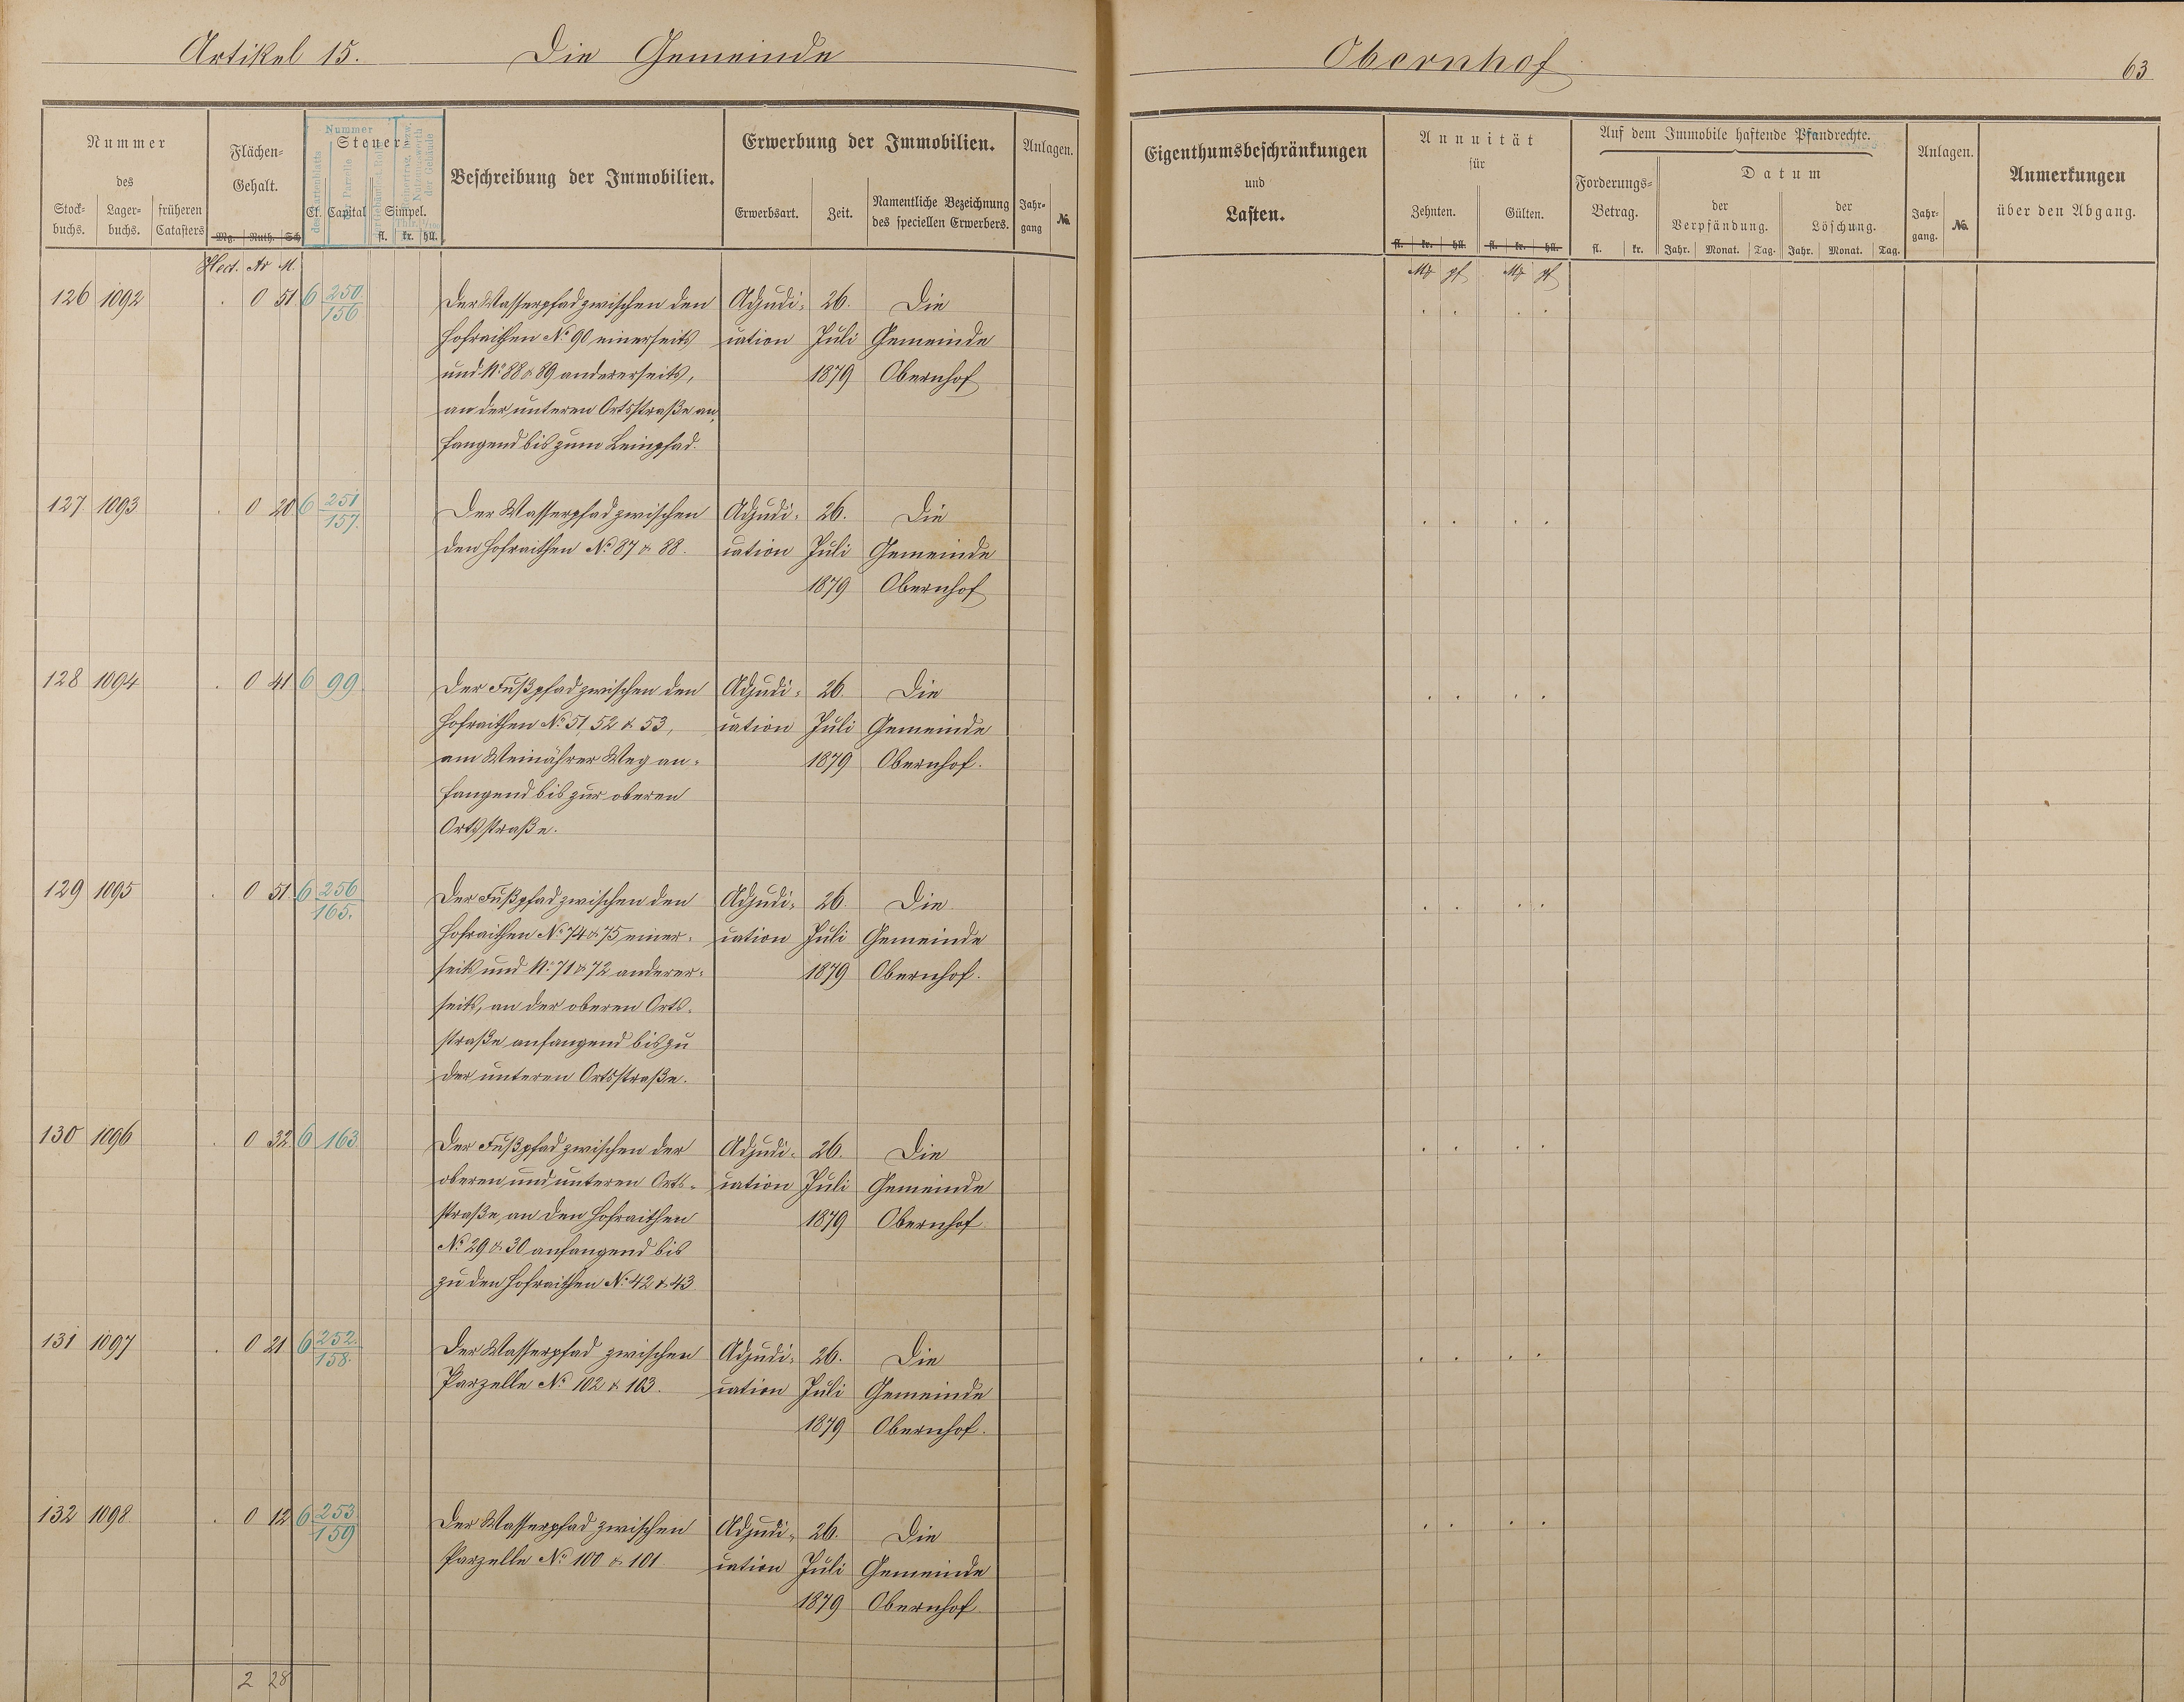 Artikel 15. Die Gemeinde Obernhof 63
Nummer des
Stockbuchs. Lagerbuchs. früheren Catasters
Flächen-Gehalt.
Mg. Ruth. Sch.
Hect. Ar M.
Steuer
Cl. Capital Simpel.
fl. kr. hll.
Nummer
Beschreibung der Immobilien.
Erwerbung der Immobilien.
Erwerbsart. Zeit. Namentliche Bezeichnung des speciellen Erwerbers.
Anlagen.
Jahrgang №.
Eigenthumsbeschränkungen
und
Lasten.
Annuität
für
Zehnten. Gülten.
fl. kr. hll. fl. kr. hll.
Mk pf Mk pf
Auf dem Immobile haftende Pfandrechte.
Forderungs-Betrag.
fl. kr.
Datum
der Verpfändung. der Löschung.
Jahr. Monat. Tag. Jahr. Monat. Tag.
Anlagen.
Jahrgang. №.
Anmerkungen
über den Abgang.
126 1092 . 0 51 6 250/156 Der Wasserpfad zwischen den Adjudi- 26. Die
Hofraithen No 90 einerseits cation Juli Gemeinde
und No 88 & 89 andererseits, 1879 Obernhof
an der unteren Ortsstraße an-
fangend bis zum Leinpfad.
127. 1093 . 0 20 6 251/157. Der Wasserpfad zwischen Adjudi- 26. Die
den Hofraithen No 87 & 88. cation Juli Gemeinde
1879 Obernhof
128 1094 . 0 41 6 99. Der Fußpfad zwischen den Adjudi- 26. Die
Hofraithen No 51, 52 & 53, cation Juli Gemeinde
am Weinährer Weg an- 1879 Obernhof.
fangend bis zur oberen
Ortsstraße.
129 1095 . 0 51. 6 256/165. Der Fußpfad zwischen den Adjudi- 26. Die
Hofraithen No 74 & 75 einer- cation Juli Gemeinde
seits und No 71 & 72 anderer- 1879 Obernhof.
seits, an der oberen Orts-
straße anfangend bis zu
der unteren Ortsstraße.
130 1096 . 0 32. 6 163 Der Fußpfad zwischen der Adjudi- 26. Die
oberen und unteren Orts- cation Juli Gemeinde
straße, an den Hofraithen 1879 Obernhof.
No 29 & 30 anfangend bis
zu den Hofraithen No 42 & 43
131 1097 . 0 21 6 252./158. Der Wasserpfad zwischen Adjudi- 26. Die
Parzelle No 102 & 103. cation Juli Gemeinde
1879 Obernhof.
132 1098. . 0 12 6 253/159 Der Wasserpfad zwischen Adjudi- 26. Die
Parzelle No 100 & 101 cation Juli Gemeinde
1879 Obernhof.
2 28